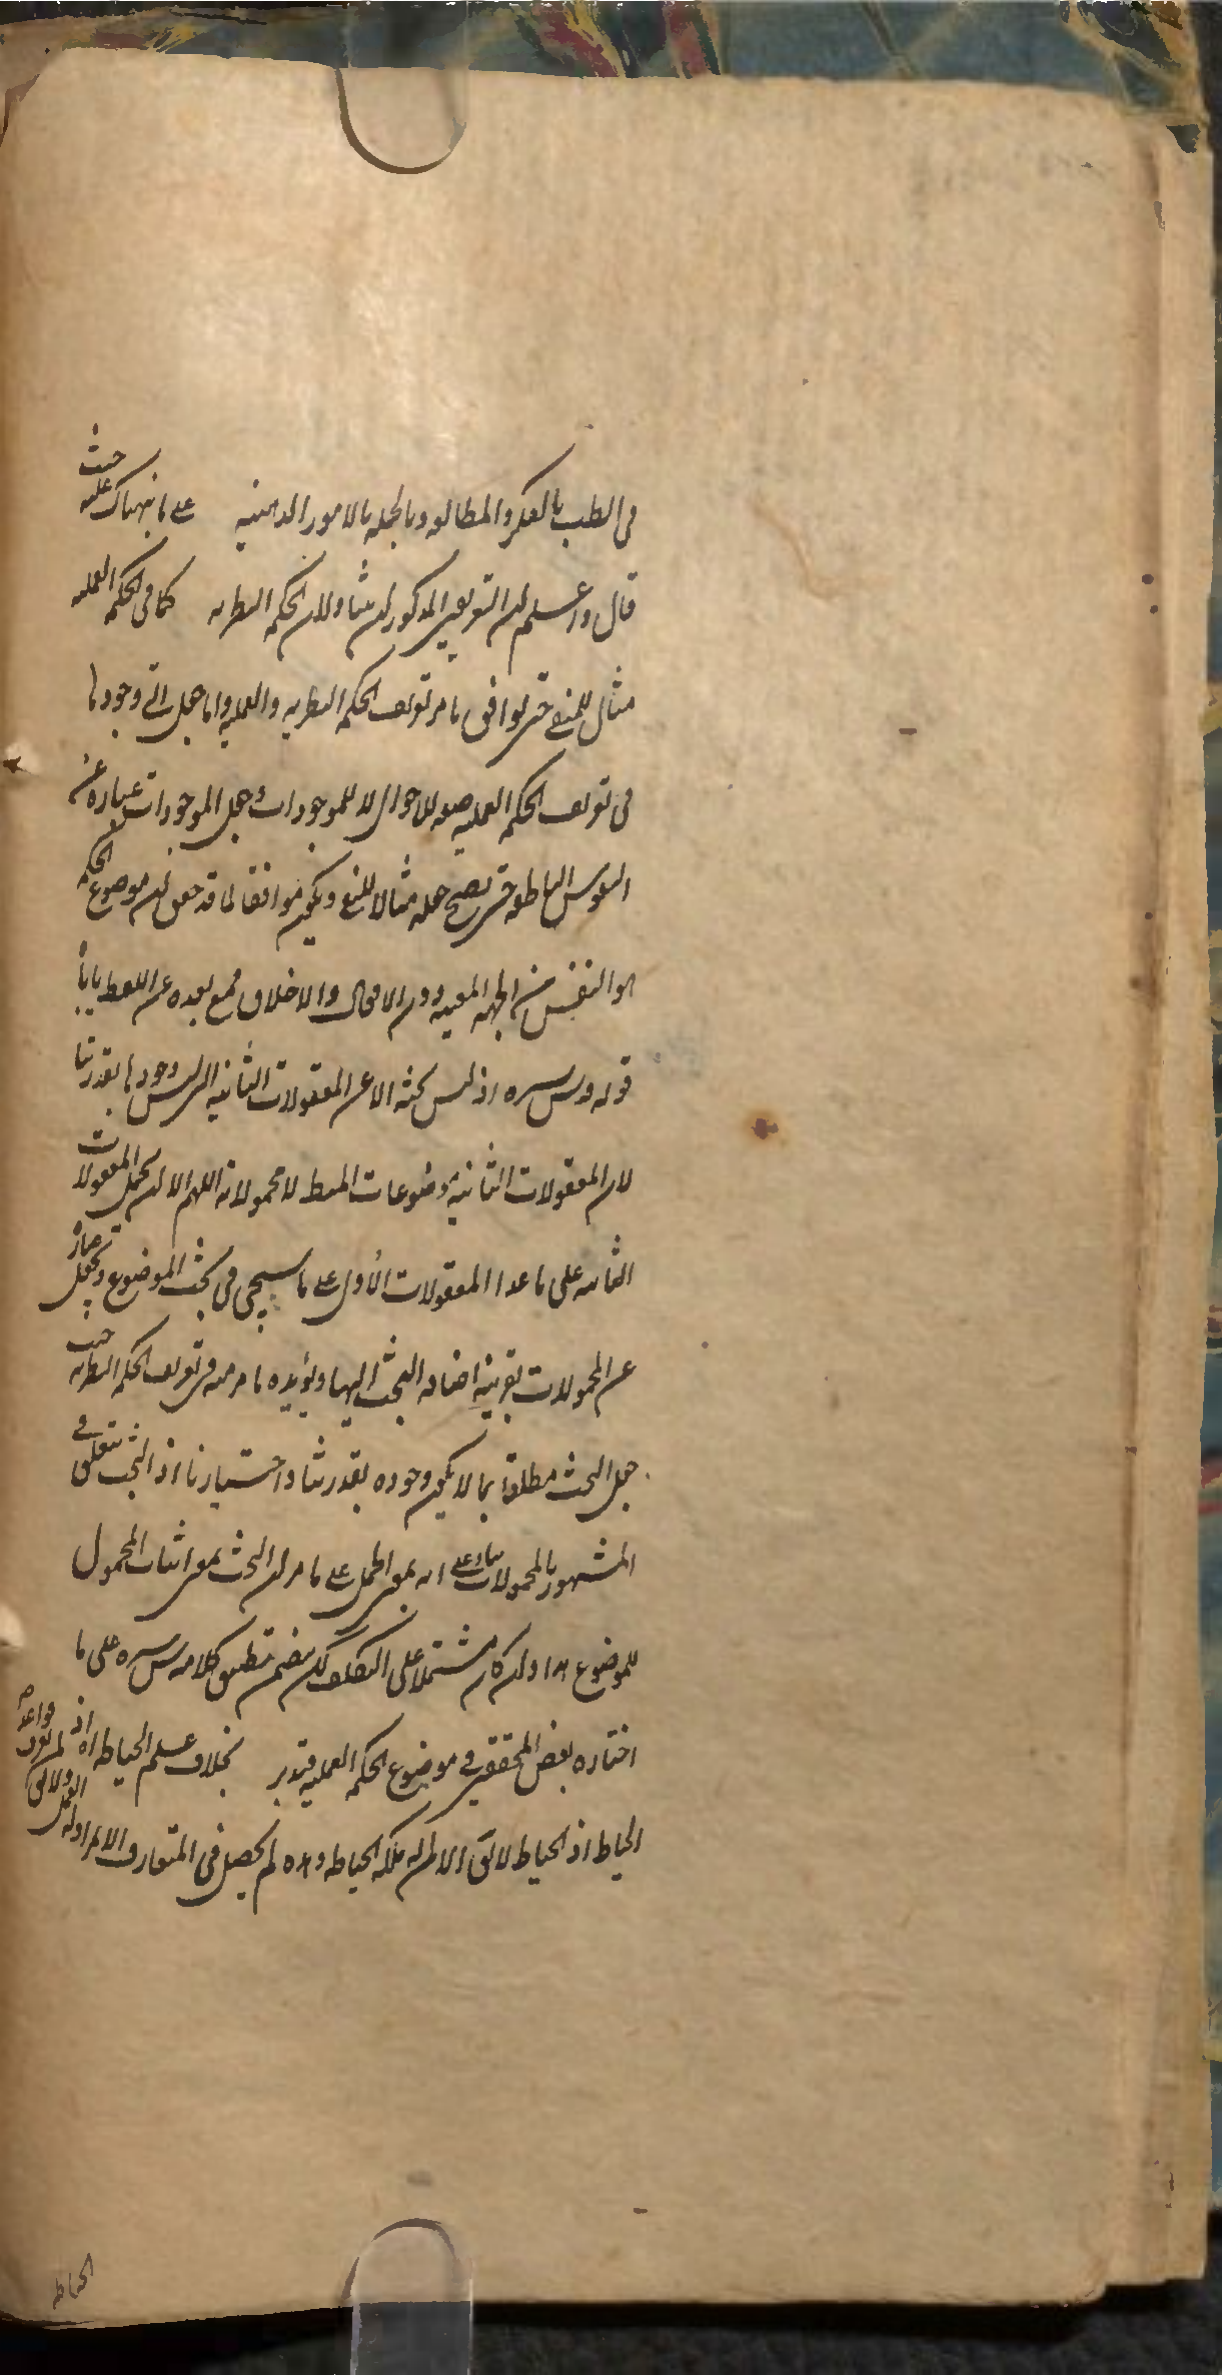 فى الطب بالفكر والمطالعه وبالجمله بالامور الذهنيه على ما نبهناك عليه حيث
قال واعلم ان التعريف المذكور ان يتناولان الحكمه النظريه كما فى الحكمه العمليه
مثال للمنفى حتى يوافق ما مر تعريف الحكمه النظريه والعمليه واما جعل التى وجودها
فى تعريف الحكمه العمليه صفه للاحوال لا للموجودات وجعل الموجودات عباره عن
النفوس الناطقه حتى يصح جعله مثالا للنفى ويكون موافقا لما قد حقق ان موضوع الحكمه
هو النفس من الجهه المعينه دون الافعال والاخلاق فمع بعده عن اللفظ يأباه
قوله قدس سره اذ ليس بحثه الا عن المعقولات الثانيه التى ليس وجودها بقدرتنا
لان المعقولات الثانيه موضوعات المنطق لا محمولاته اللهم الا ان يحمل المعقولات
الثانيه على ما عدا المعقولات الأولى على ما سيجى فى بحث الموضوع وتجعل عباره
عن المحمولات بقرينه اضافه البحث اليها ويؤيده ما مر منه فى تعريف الحكمه النظريه حيث
جعل البحث مطلقا بما لا يكون وجوده بقدرتنا واختيارنا اذ البحث يتعلق فى
المشهور بالمحمولات بناء على انه بمعنى الحمل على ما مر ان البحث بمعنى اثبات المحمول
للموضوع هذا وان كان مشتملا على التكلف لكن يتضمن تطبيق كلامه قدس سره على ما
اختاره بعض المحققين فى موضوع الحكمه العمليه فتدبر بخلاف علم الخياطه اه اذ لم تعرف قواعده
الخياط اذ الخياط لا يقال الا لمن له ملكه الخياطه وهذه لم تحصل فى المتعارف الا لمزاوله العمل ولا يقال
الخياط